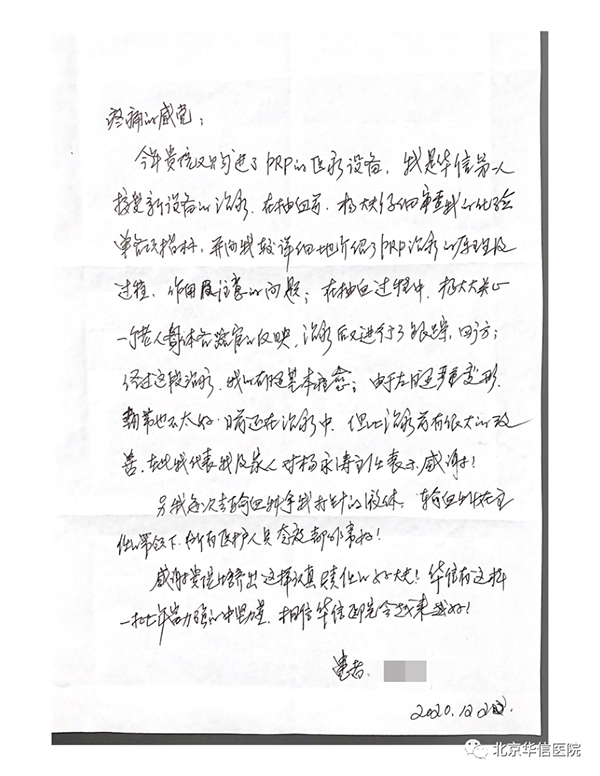 疼痛的感觉:
今年贵院又购进了PRP的医疗设备,我是华信第一人
接受新设备的治疗.在抽血前.杨大夫仔细审查我的化验
单各项指标,并向我较详细地介绍了PRP治疗的原理及
过程,作用及注意的问题;在抽血过程中.杨大夫关心
一个老人身体各器官的反映,治疗后又进行了跟踪,回访;
经过这段治疗.我的右腿基本痊愈;由于左腿严重变形.
韧带也不太好.目前还在治疗中.但比治疗前有很大的改
善.在此我代表我及家人对杨永涛主任表示感谢!
另我每次去输血科拿我打针的液体,输血科在主
任的带领下,所有医护人员态度都非常好!
感谢贵院培养出这样认真负责任的好大夫!华信有这样
一批年富力强的中坚力量,相信华信医院会越来越好!
患者:
2020.12.
北京华信医院